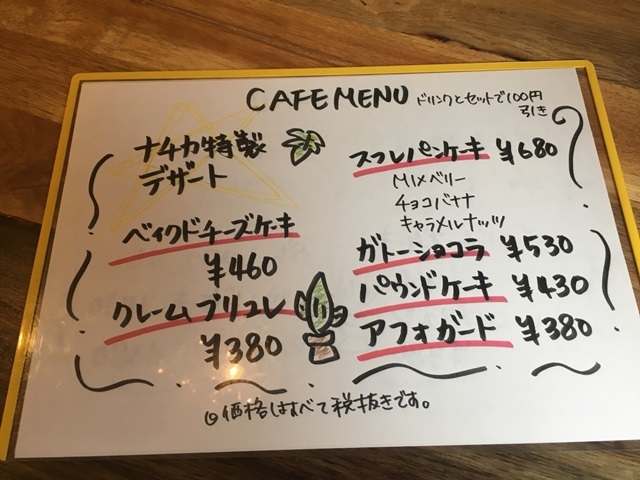 CAFE MENU ドリンクとセットで100円
引き
ナチカ特製
デザート
ベイクドチーズケーキ
¥460
クレームブリュレ
¥380
スフレパンケーキ ¥680
MIXベリー
チョコバナナ
キャラメルナッツ
ガトーショコラ ¥530
パウンドケーキ ¥430
アフォガード ¥380
◎価格はすべて税抜きです。